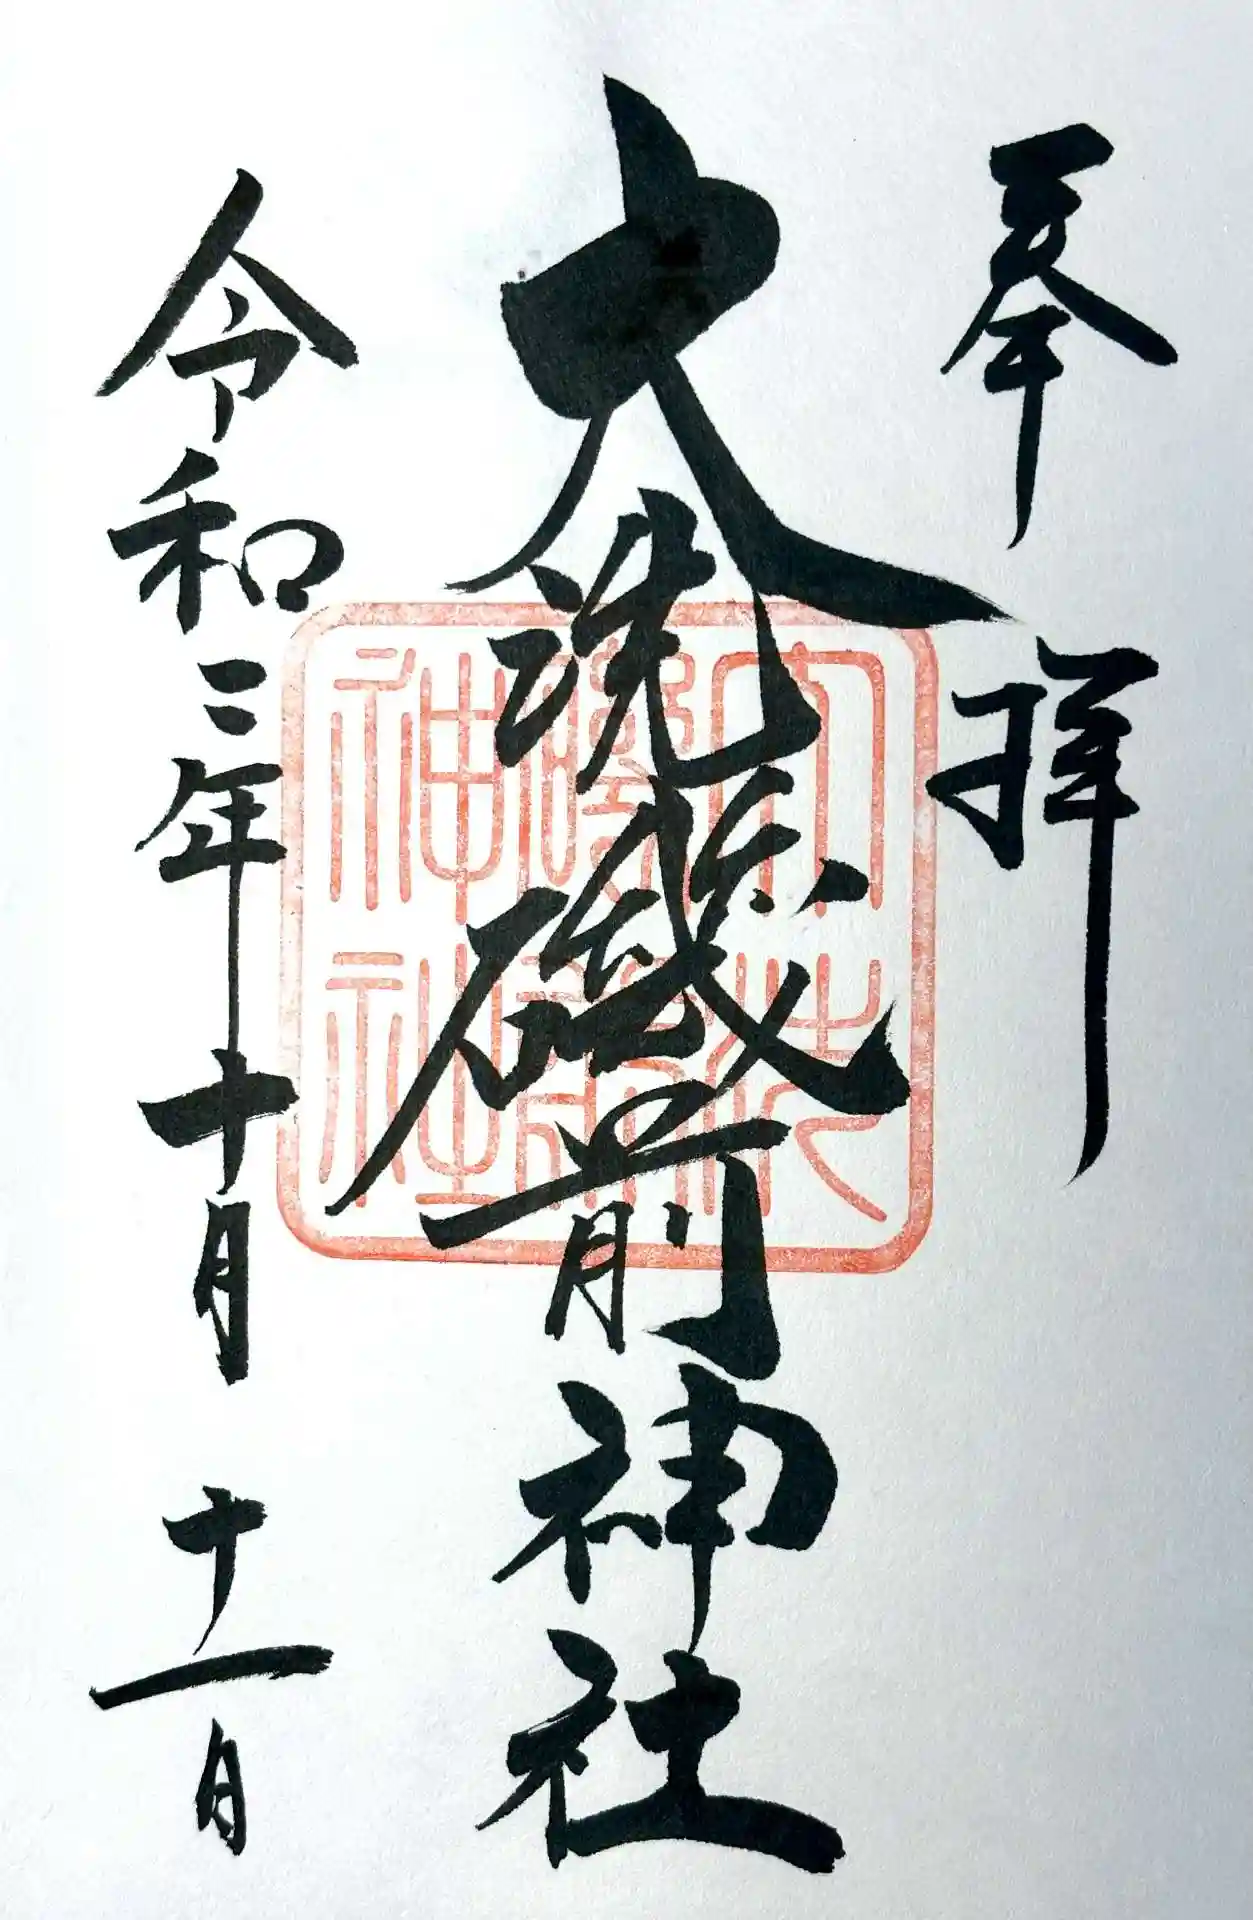 奉拝
大洗磯前神社
令和三年十月十一日
大洗
磯前
神社